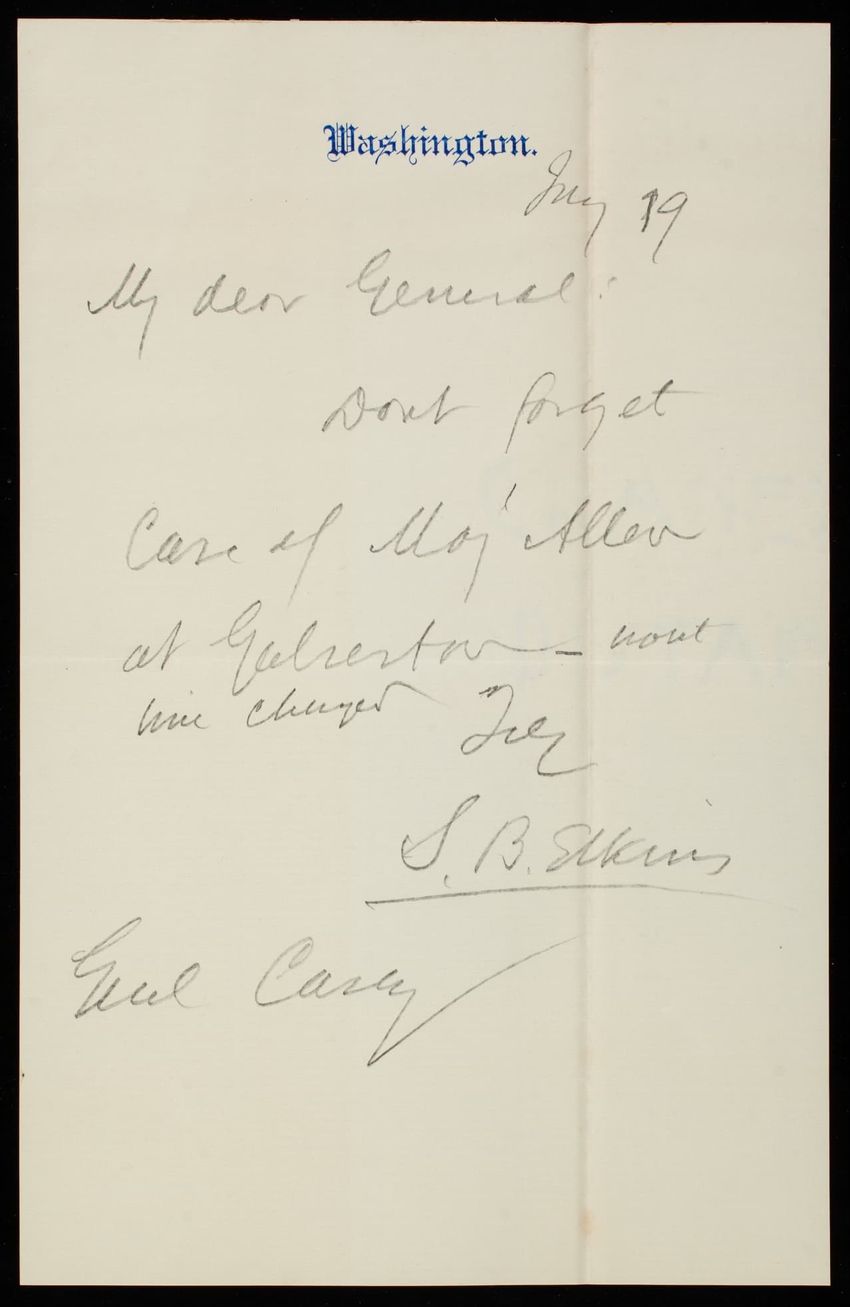 Washington.
Jny 19
My dear General:
Dont forget
Case of Maj' Allen
at Galveston – wont
him changed Truly
S. B. Elkins
Genl Casey